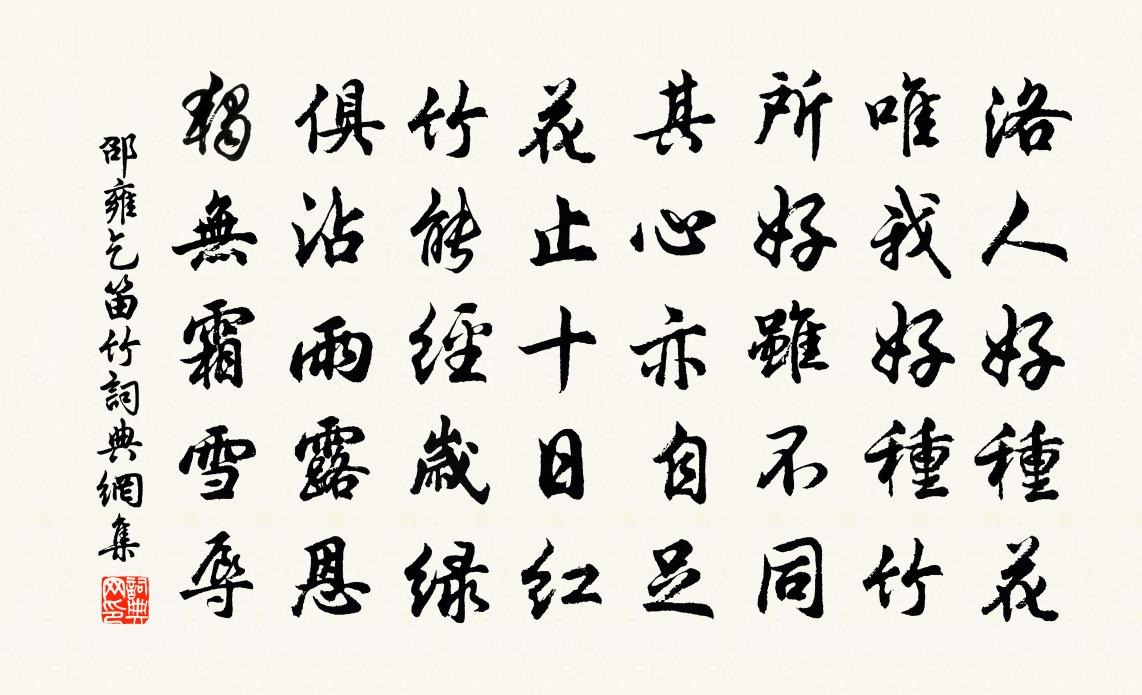 洛人好種花
唯我好種竹
所好雖不同
其心亦自足
花止十日紅
竹能經歲綠
俱沾雨露恩
獨無霜雪辱
邵雍乞笛竹詞典網集
詞典网印